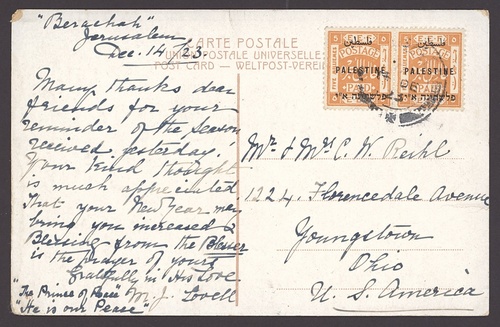 "Berachah"
Jerusalem
Dec. 14/23.
CARTE POSTALE
UNION POSTALE UNIVERSELLE
POST CARD — WELTPOST-VEREIN
Many thanks dear
friends for your
reminder of the season
received yesterday!
Your kind thought
is much appreciated
That your New Year may
bring you increased
Blessing from the Blesser
is the prayer of yours
Gratefully in His love
M. J. Lovell
"The Prince of Peace"
"He is our Peace"
فلسطين
POSTAGE
PALESTINE
PAID
פלשתינה א״י
فلسطين
POSTAGE
PALESTINE
PAID
פלשתינה א״י
Mr & Mrs C. W.
1224. Florencedale Avenue
Youngstown
Ohio
U. S. America